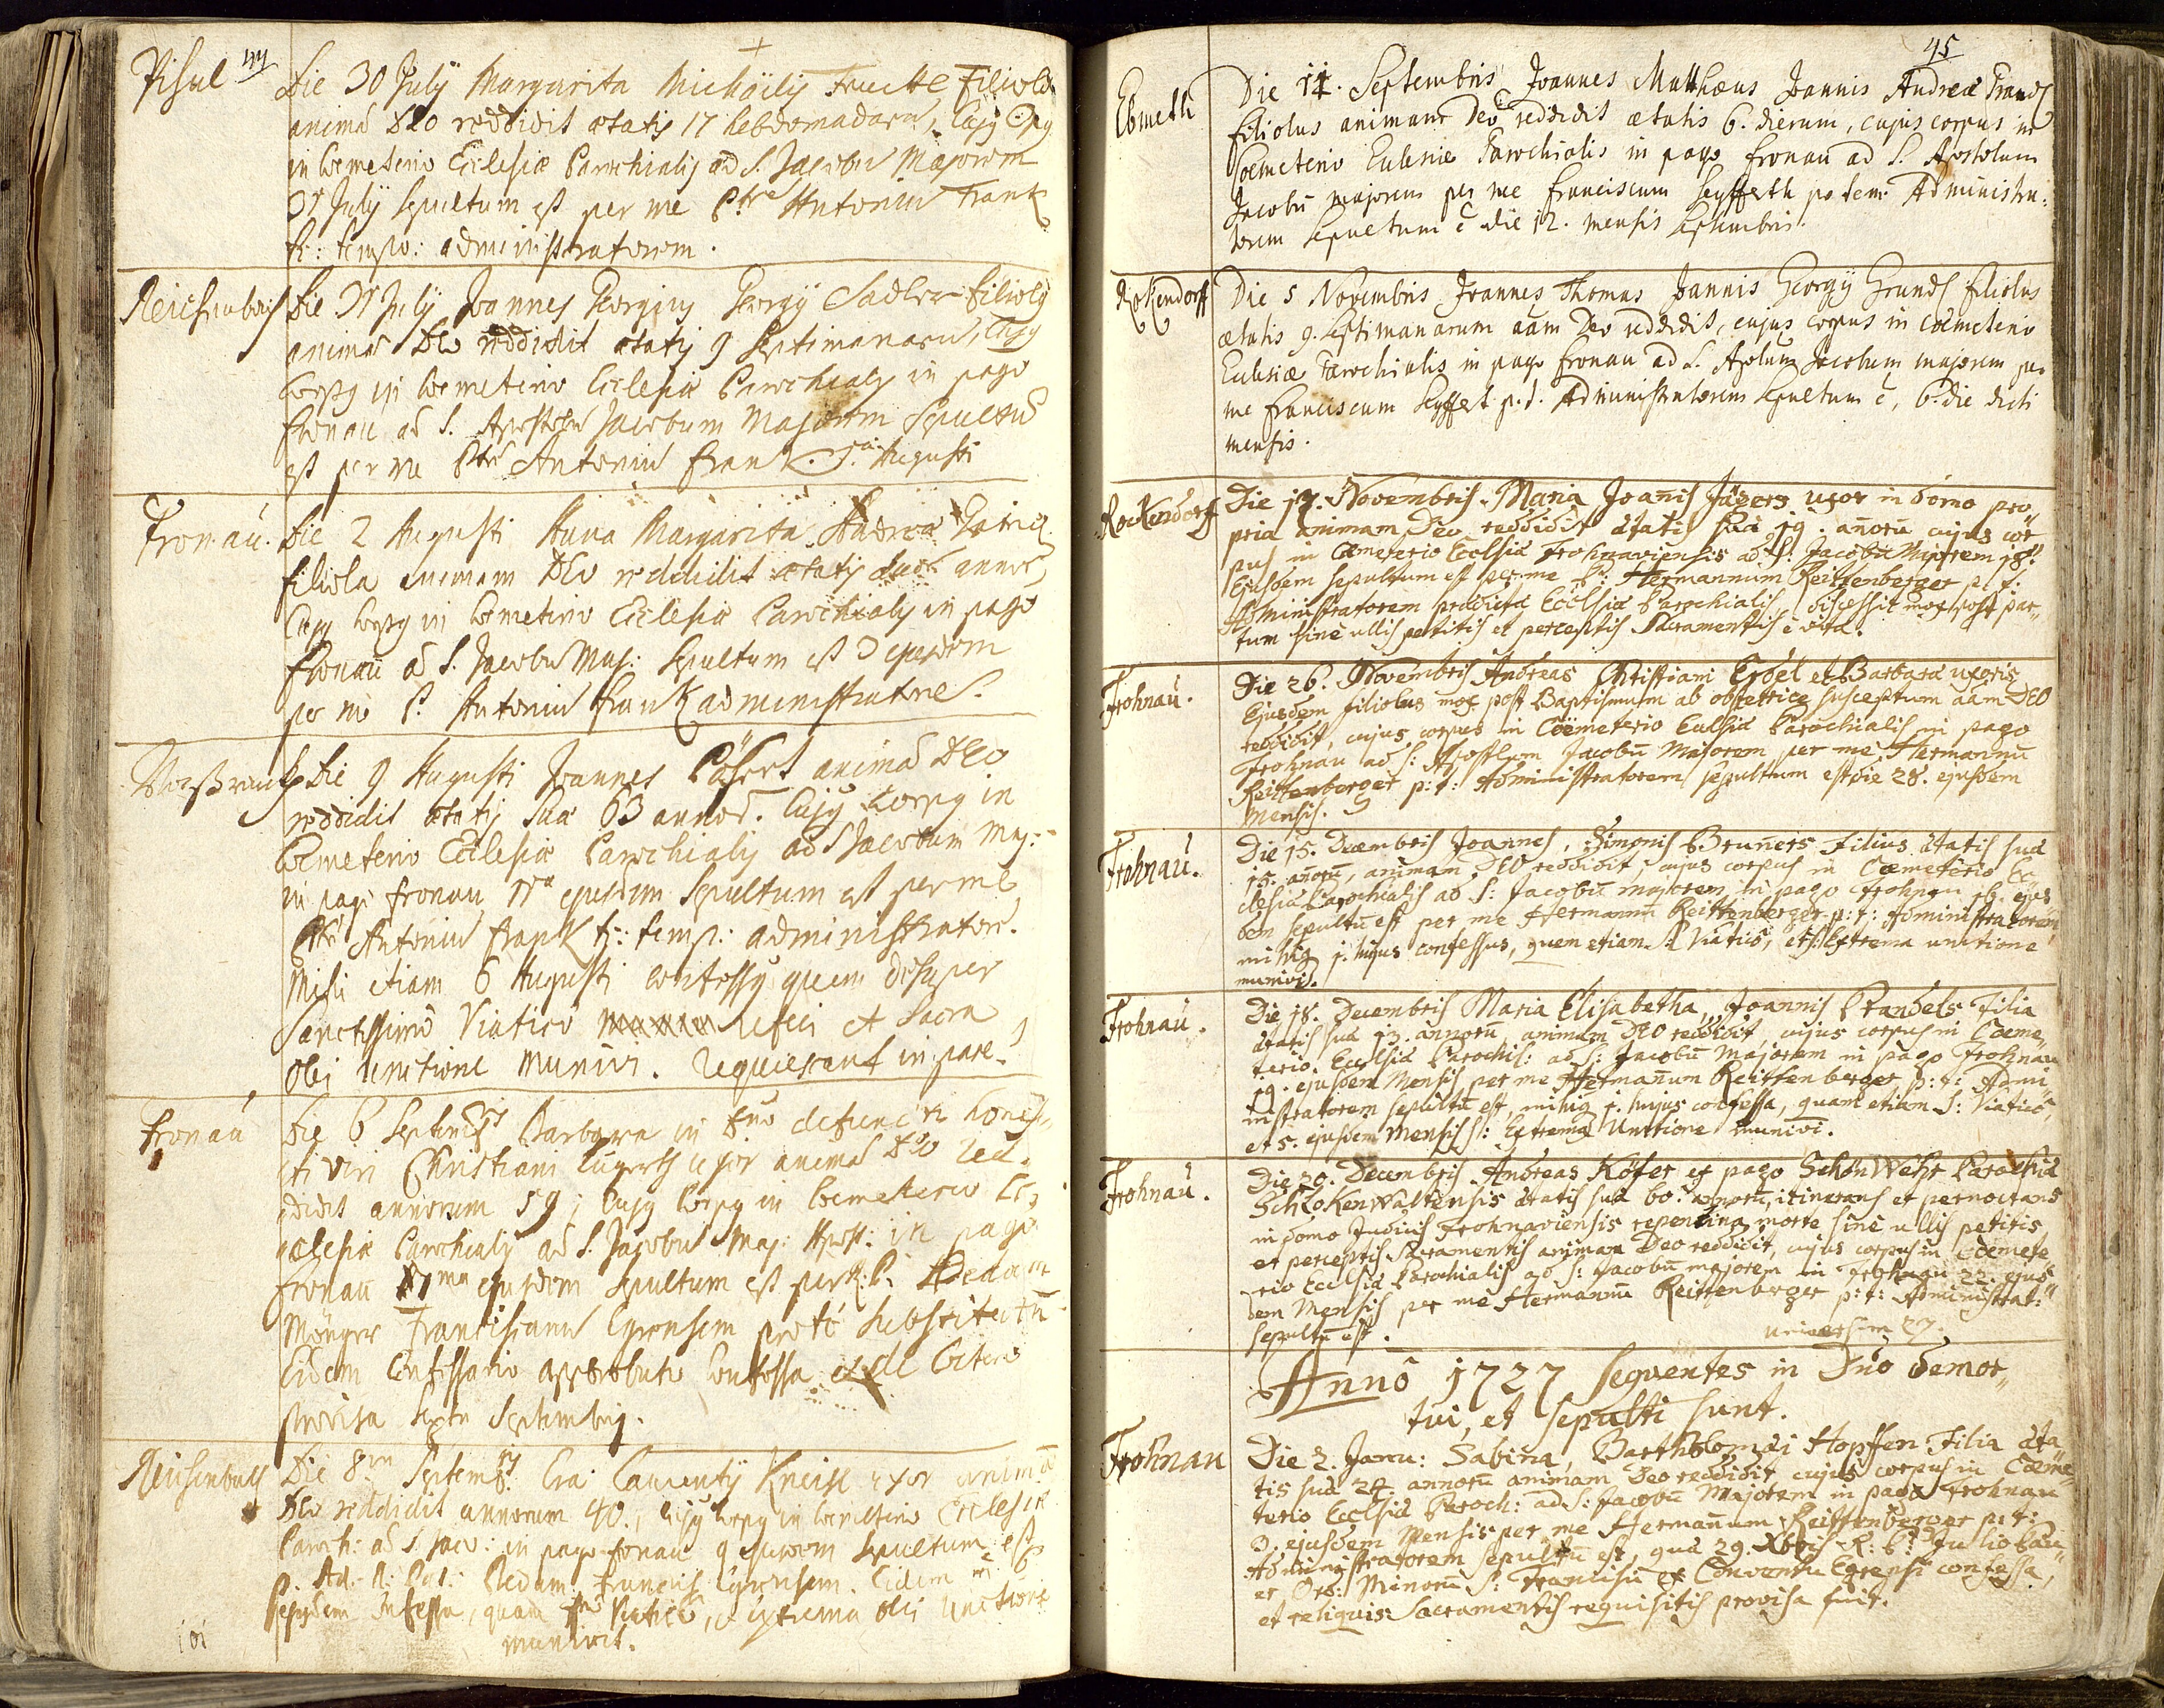 44
Pisul
Die 30 July Margarita Michaëlis filiola
animā DEO reddidit ætatis 17 hebdomadarū, cujus
in Coemeterio Ecclesiæ Parochialis ad S. Jacobū Majorem
31 July sepultum est per me Antoniū Frank
p: tempo: administratorem.
Reichenbach
Die 31 July Joannes Georgius Georgij Sadler filiolus
animā DEO reddidit ætatis 9 septimanarū, cujus
corpus in Coemeterio Ecclesiæ Parochialis in pago
Fronau ad S. Apostolū Jacobum Majorem sepultū
est per me Antoniū Frank. 1ā Augusti
Fronau.
Die 2 Augusti Anna Margarita Andreæ
filiola animam DEO reddidit ætatis suæ
cujus corpus in Coemeterio Ecclesiæ Parochialis in pago
Fronau ad S. Jacobū Maj: sepultum est 3 ejusdem
per me P. Antoniū Frank administratore.
Die 9 Augusti Joannes animā DEO
reddidit ætatis suæ 63 annor. Cujus corpus in
Coemeterio Ecclesiæ Parochialis ad S Jacobum Maj:
in pago Fronau 11ā ejusdem sepultum est per me
Antoniū Frank p: temp: administrator.
Mihi etiam 6 Augusti confessus quem desuper
Sanctissimo Viatico refeci et sacra
olei unctione munivi. Requiescant in pace.
Fronau
Die 6 Septembris Barbara in Dno defuncti hones,,
ti viri Christiani uxor animā Deo red,
didit annorum 59; cujus corpus in Coemeterio Ec,
clesiæ Parochialis ad S. Jacobū Maj: Apost: in pago
Fronau ejusdem sepultum est per R: P.
Franciscanū Egrensem substitutū
Eidem Confessario approbato confessa et de
provisa Septembris.
Reichenbach
Die 8va Septembris Eva Laurentij uxor animā
DEO reddidit annorum 40., cujus corpus in Coemeterio Ecclesiæ
Paroch: ad S. Jaco: in pago Fronau 9 ejusdem sepultum est
Ad. R: Francis: Egrensem. Eidem
confessa, quam Viatico, et extrema olei unctione
munivit.
101
45
Ebmeth
Die 11. Septembris Joannes Matthæus Joannis Andreæ
filiolus animam Deo reddidit ætatis 6. dierum, cujus corpus in
Coemeterio Ecclesiæ Parochialis in pago Fronau ad S. Apostolum
Jacobū majorem per me Franciscum Seyfferth pro tem: Administra:
torem sepultum ē die 12. mensis Septembris.
Rokendorff
Die 5 Novembris Joannes Thomas Joannis Georgij Grundl filiolus
ætatis 9. septimanarum aām Deo reddidit, cujus corpus in Coemeterio
Ecclesiæ Parochialis in pago Fronau ad S. Apolum Jacobum majorem per
me Franciscum Seyffert p. t. Administratorem sepultum ē, 6. die dicti
mensis.
Rockendorf
Die 17. Novembris Maria Joanīs Jägers uxor in domo pro,,
pria animam Deo reddidit ætatis suæ 39. añorū cujus cor
pus in Cæmeterio Ecclsiæ Frohnaviensis ad S: Jacobū Majorem 18.
Ejusdem sepultum est per me P: Hermannum Reittenberger p. t.
Administratorem prædictæ Ecclsiæ Parochialis, discessit mox post par,,
tum sine ullis petitis et perceptis Sacramentis è vita.
Frohnau.
Die 26. Novembris Andreas Christiani Erdel et Barbaræ uxoris
Ejusdem filiolus mox post Baptismum ab obstetrice susceptum aām DEO
reddidit, cujus corpus in Cœmeterio Ecclsiæ Parochialis in pago
Frohnau ad S: Apostlum Jacobū Majorem per me Hermannū
Reittenberger p: t: Administratorem sepultum est die 28. ejusdem
Mensis.
Frohnau.
Die 15. Decembris Joannes, Simonis Bruners filius ætatis suæ
15. añorū, animam DEO reddidit, cujus corpus in Cæmeterio Ec
clesiæ Parochialis ad S: Jacobū majorem, in pago Frohnau 16. ejus
dem sepultū est per me Hermannū Reittenberger p: t: Administratorem,
mihiq 1. hujus confessus, quem etiam S: Viaticō, et S: Extrema unctione
munivi.
Frohnau.
Die 18. Decembris Maria Elisabetha, Joannis Prandels Filia
ætatis suæ 13. annorū animam DEO reddidit, cujus corpus in Cæme,,
terio Ecclsiæ Parochis: ad S: Jacobū majorem in pago Frohnau
19. ejusdem Mensis per me Hermañum Reittenberger p: t: Admi,,
nistratorem sepultū est, mihiq 1. hujus confessa, quam etiam S: Viaticō,
et 5. ejusdem Mensis S: Extrema Unctione munivi.
Frohnau.
Die 20. Decembris Andreas Köfer ex pago Schönwehr Parochiæ
Schlokenwaltensis ætatis suæ 60. annorū, itinerans et pernoctans
in domo Judicis Frohnaviensis repentina morte sine ullis petitis
et perceptis Sacramentis animam Deo reddidit, cujus corpus in Cœmete
rio Ecclsiæ Parochialis ad S: Jacobū majorem in Frohnau 22. ejus
dem Mensis per me Hermannū Reittenberger p: t: Administrat:
sepultū est.
universim 27.
Annô 1727 sequentes in Dn̄o demor,,
tui, et sepulti sunt.
Frohnau
Die 2. Janu: Sabina, Bartholomæi Hopffen Filia æta
tis suæ 24. annorū animam Deo reddidit, cujus corpus in Cæme,,
terio Ecclsiæ Paroch: ad S: Jacobū Majorem in pago Frohnau
3. ejusdem Mensis per me Hermañum Reittenberger p: t:
Administratorem sepultū est, quæ 29. Xbris R: P: Julio Lau,,
er Ord: Minorū S: Francisci ex Conventu Egrensi confessa,
et reliquis Sacramentis requisitis provisa fuit.